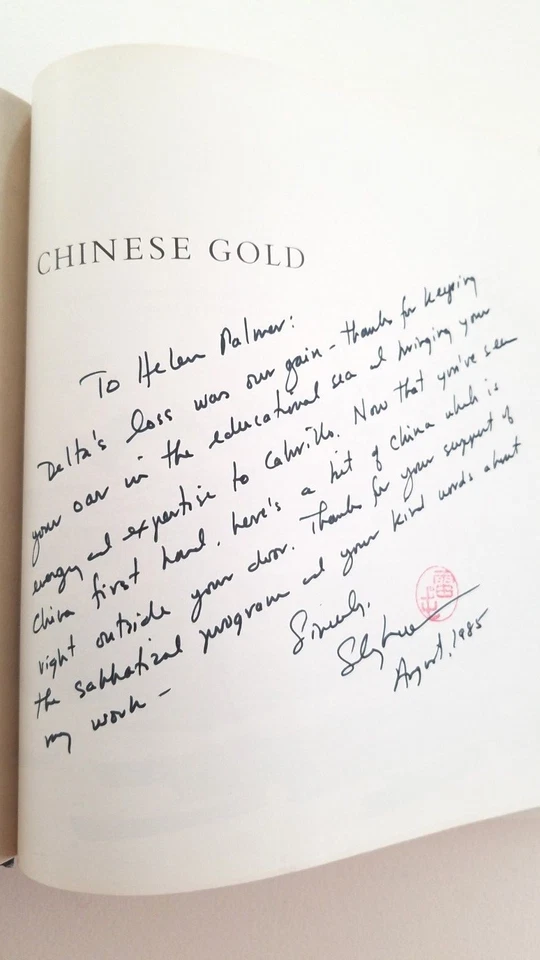 CHINESE GOLD
To Helen Palmer:
Delta's loss was our gain - thanks for keeping
your oar in the educational sea and bringing your
energy and expertise to Cabrillo. Now that you've seen
China first hand, here's a bit of China which is
right outside your door. Thanks for your support of
the sabbatical program and your kind words about
my work -
Sincerely,
August, 1985